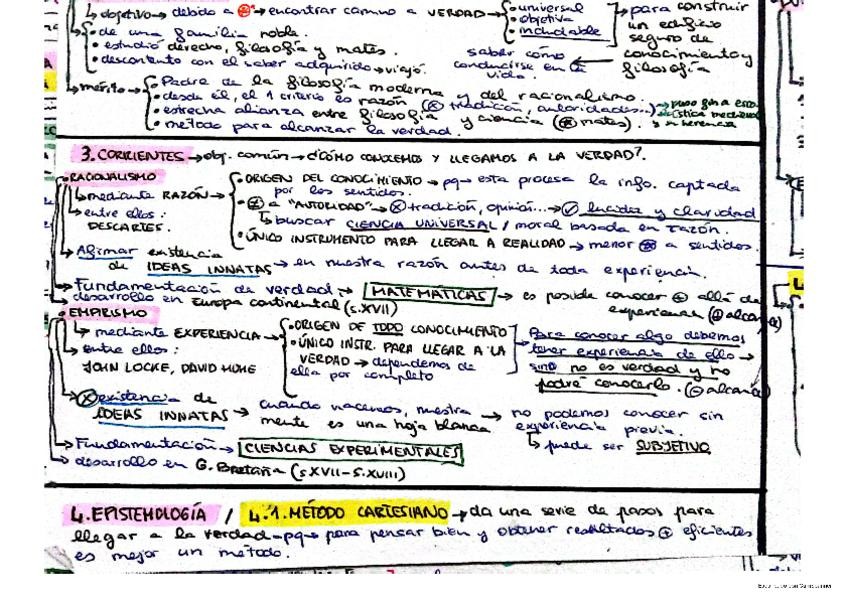 objetivo → debido a → encontrar camino a VERDAD → • universal • objetiva • indudable → para construir un edificio seguro de conocimiento y filosofía
saber cómo conducirse en la vida.
• de una familia noble.
• estudió derecho, filosofía y mates.
• descontento con el saber adquirido → viajó.
mérito → • Padre de la filosofía moderna y del racionalismo.
• desde él, el 1 criterio es razón (⊗ tradición, autoridades...) → puso fin a
• estrecha alianza entre filosofía y ciencia (mates).
• método para alcanzar la verdad.
3. CORRIENTES → obj. común → ¿CÓMO CONOCEMOS Y LLEGAMOS A LA VERDAD?.
• RACIONALISMO
↳ mediante RAZÓN →
↳ entre ellos:
DESCARTES.
• ORIGEN DEL CONOCIMIENTO → pq → esta procesa la info. captada
por los sentidos.
• a "AUTORIDAD" → ⊗ tradición, opinión... → lucidez y claridad
↳ buscar CIENCIA UNIVERSAL / moral basada en razón.
• ÚNICO INSTRUMENTO PARA LLEGAR A REALIDAD → menor a sentidos.
↳ Afirmar existencia
de IDEAS INNATAS → en nuestra razón antes de toda experiencia.
↳ Fundamentación de verdad → MATEMÁTICAS → es posible conocer ⊕ allá de
experiencia (⊕ alcance)
↳ desarrollo en Europa continental (s.XVII)
• EMPIRISMO
↳ mediante EXPERIENCIA →
↳ entre ellos:
JOHN LOCKE, DAVID HUME
• ORIGEN DE TODO CONOCIMIENTO
• ÚNICO INSTR. PARA LLEGAR A LA
VERDAD → dependemos de
ella por completo
Para conocer algo debemos
tener experiencia de ello →
sino no es verdad y no
podré conocerlo. (⊖ alcance)
↳ ⊗ existencia de
IDEAS INNATAS → cuando nacemos, nuestra
mente es una hoja blanca → no podemos conocer sin
experiencia previa.
↳ puede ser SUBJETIVO
↳ Fundamentación → CIENCIAS EXPERIMENTALES
↳ desarrollo en G. Bretaña (s.XVII-S.XVIII)
4. EPISTEMOLOGÍA / 4.1. MÉTODO CARTESIANO → da una serie de pasos para
llegar a la verdad → pq → para pensar bien y obtener resultados ⊕ eficientes
es mejor un método.